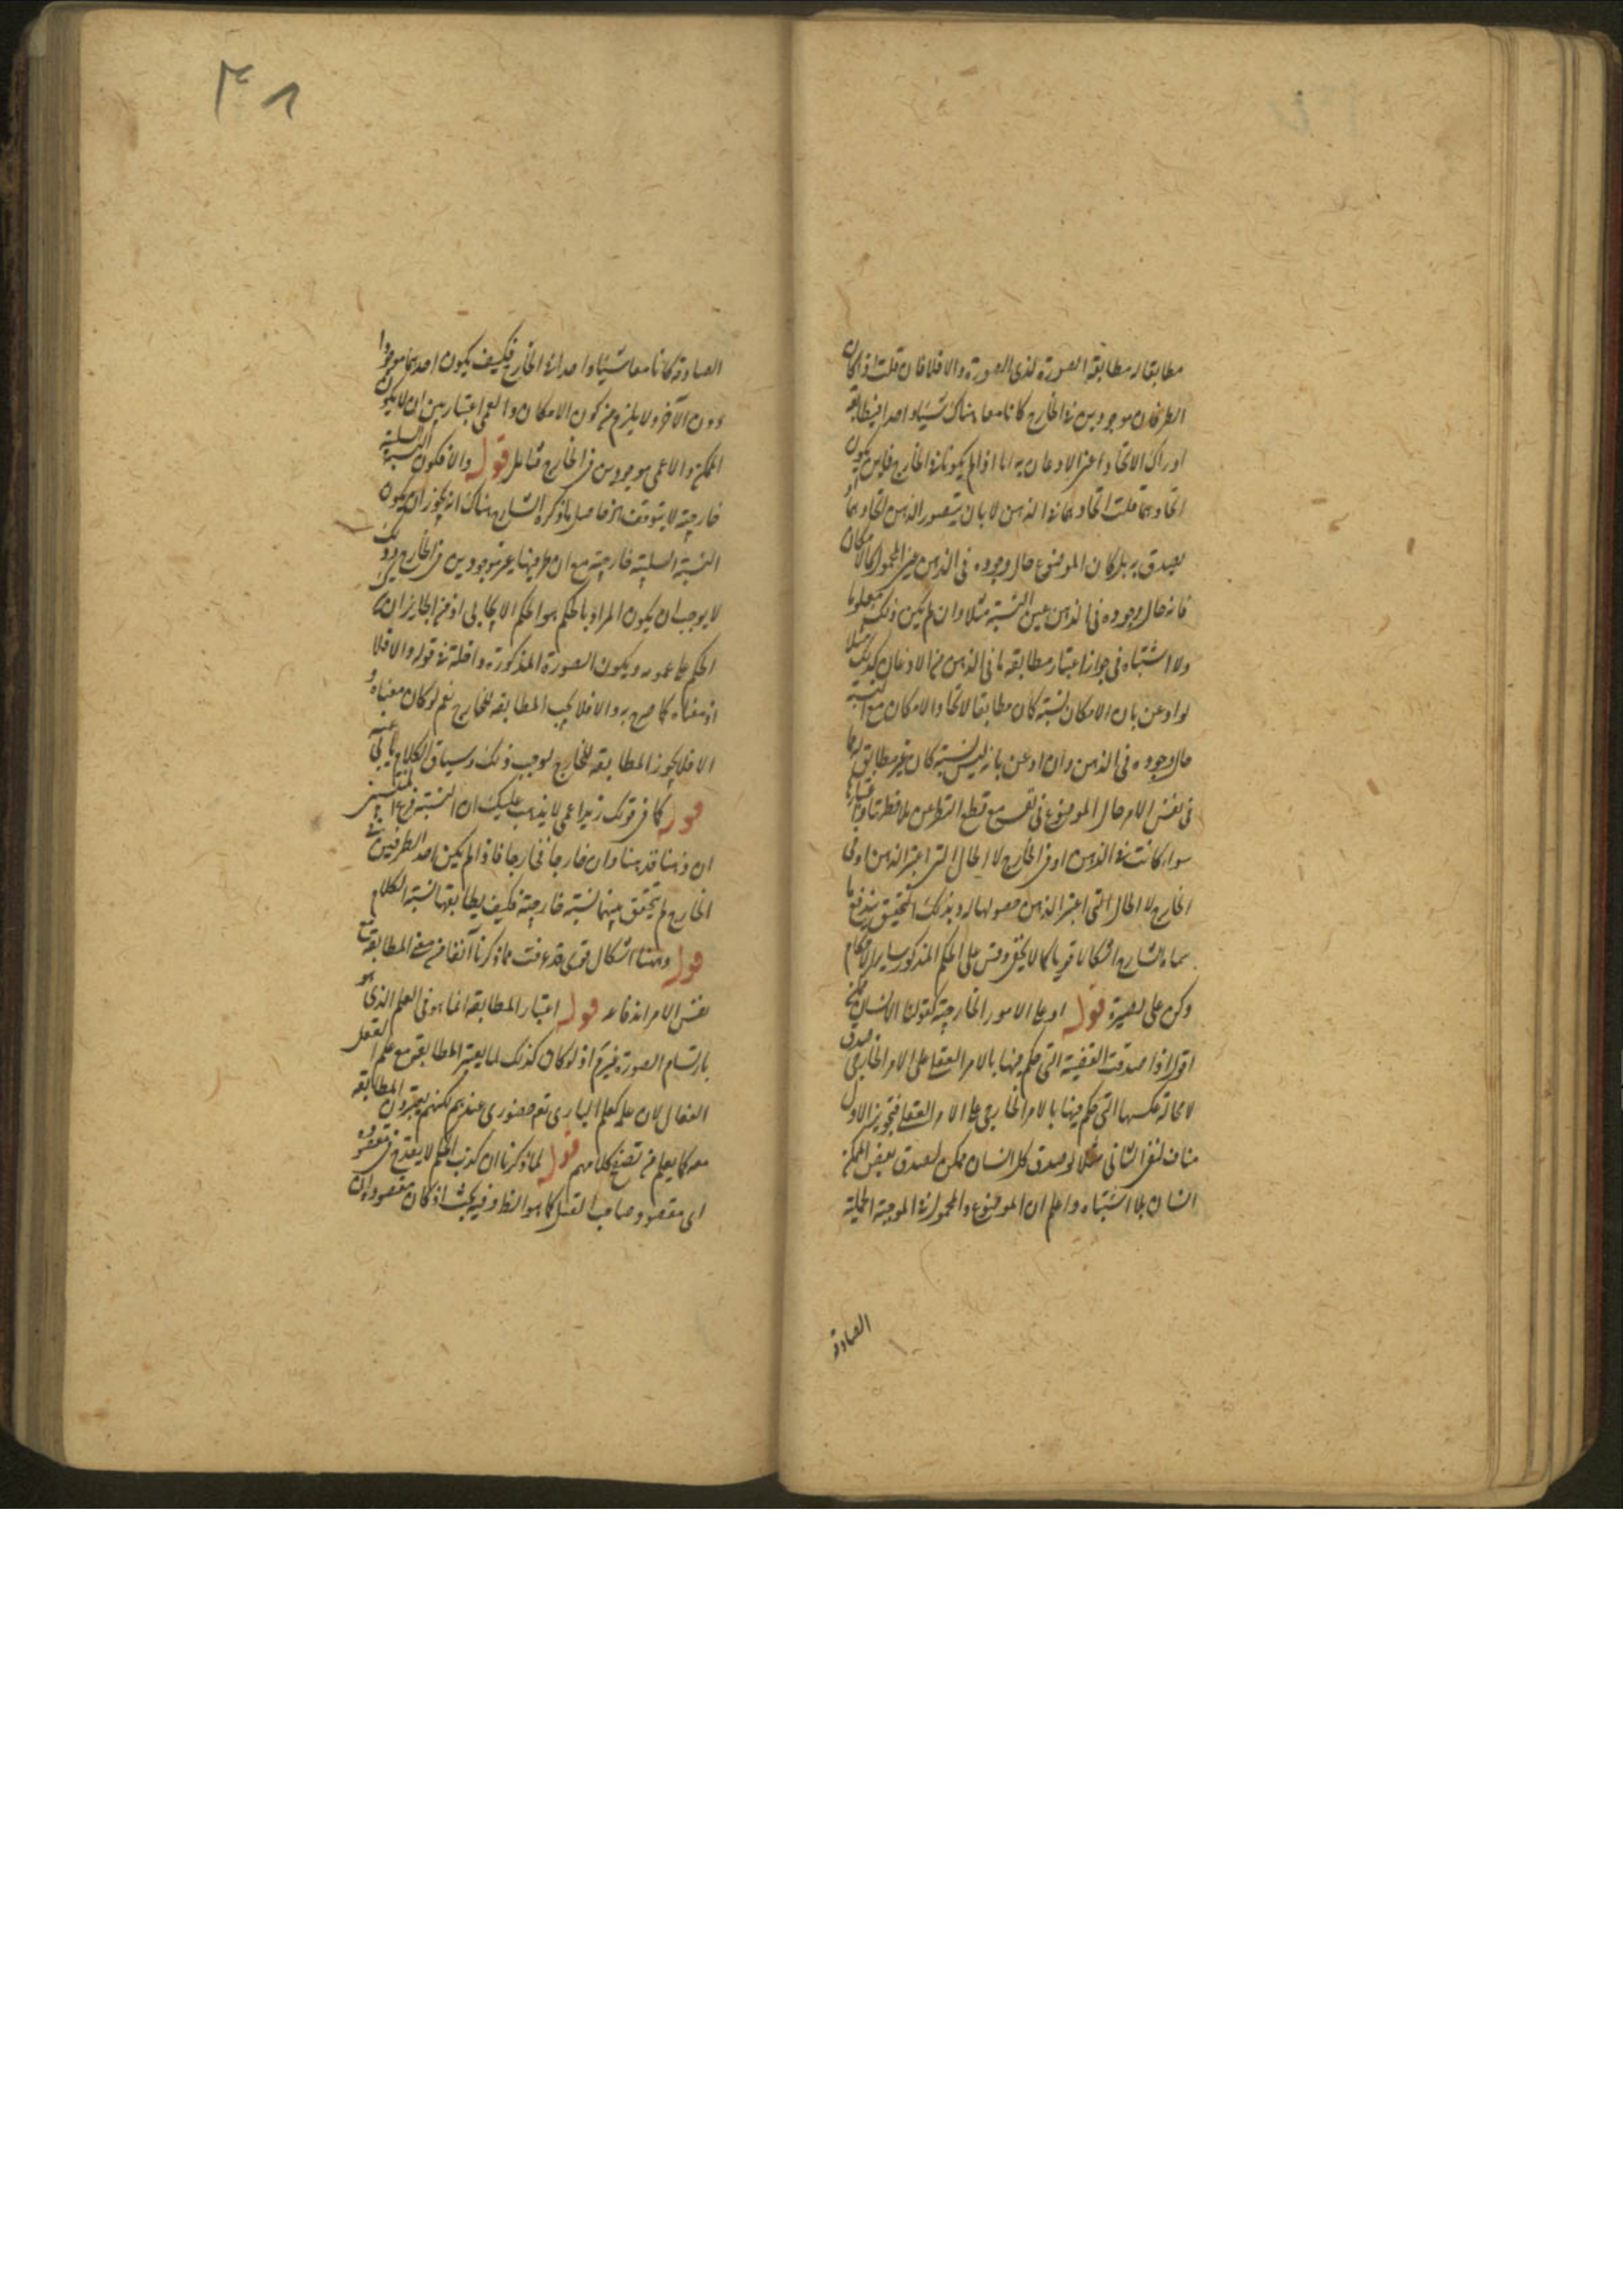 مطابقا له مطابقة الصورة لذي الصورة والا فلا فان قلت اذا كان
الطرفان موجودين في الخارج كانا معا هناك شيئا واحدا فيطابقه
ادراك الاتحاد اعني الاذعان به اما اذا لم يكونا في الخارج فلا يكون
اتحادهما قلت اتحادهما في الذهن لا بان يتصور الذهن اتحادهما او
يصدق به بل كان الموضوع حال وجوده في الذهن عين المحمول كالامكان
فانه حال وجوده في الذهن عين النسبة مثلا وان لم يكن ذلك معلوما
ولا اشتباه في جواز اعتبار مطابقة ما في الذهن من الاذعان كذلك مثلا
لو اذعن بان الامكان نسبة كان مطابقا لاتحاد الامكان مع النسبة
حال وجوده في الذهن وان اذعن بانه ليس نسبة كان غير مطابق لها
في نفس الامر حال الموضوع في نفسه مع قطع النظر عن ملاحظتنا واعتبارنا
سواء كانت في الذهن او في الخارج لا الحال التي اعتبر الذهن او في
الخارج لا الحال التي اعتبر الذهن حصولها له وبذلك التحقيق يندفع ما
سماه الشارح اشكالا قويا كما لا يخفى وقس على الحكم المذكور ساير الاحكام
وكن على بصيرة قوله او على الامور الخارجية كقولنا الانسان ممكن
اقول اذا صدقت القضية التي حكم فيها بالامر العقلي على الامر الخارجي صدق
لا محالة عكسها التي حكم فيها بالامر الخارجي على الامر العقلي فتجويز الاول
مناف لنفي الثاني مثلا لو صدق كل انسان ممكن لصدق بعض الممكن
انسان بلا اشتباه واعلم ان الموضوع والمحمول في الموجبة الحملية
الصادقة
٣٨
الصادقة كانا معا شيئا واحدا في الخارج فكيف يكون احدهما موجودا
دون الآخر ولا يلزم من كون الامكان والعمى اعتباريين ان لا يكون
الممكن والاعمى موجودين في الخارج فتأمل قوله والا فكون النسبة السلبية
خارجية لا يتوقف الخ حاصل ما ذكره الشارح هناك انه يجوز ان يكون
النسبة السلبية خارجية مع ان طرفيها غير موجودين في الخارج وذلك
لا يوجب ان يكون المراد بالحكم هو الحكم الايجابي اذ من الجايز ان يكون
الحكم على عمومه ويكون الصورة المذكورة داخلة في قوله والا فلا
اذ معناه كما صرح به والا فلا يجب المطابقة للخارج نعم لو كان معناه و
الا فلا يجوز المطابقة للخارج لوجب ذلك وسياق الكلام يأبى عنه
قوله كما في قولك زيد اعمى لا يذهب عليك ان النسبة فرع المنتسبين
ان ذهنا فذهنا وان خارجا فخارجا فاذا لم يكن احد الطرفين في
الخارج لم يتحقق بينهما نسبة خارجية فكيف يطابقها نسبة الكلام
قوله وههنا اشكال قوي قد عرفت مما ذكرنا آنفا من معنى المطابقة مع
نفس الامر اندفاعه قوله اعتبار المطابقة انما هو في العلم الذي هو
بارتسام الصورة فيه اذ لو كان كذلك لما يعتبر المطابقة مع علم العقل
الفعال لان علمه كعلم الباري تع حضوري عندهم لكنهم يعتبرون المطابقة
معه كما يعلم من تصفح كلامهم قوله لما ذكرنا ان كذب الحكم لا يقدح في مقصوده
اي مقصود صاحب القيل كما هو الظ وفيه بحث اذ كان مقصوده ان